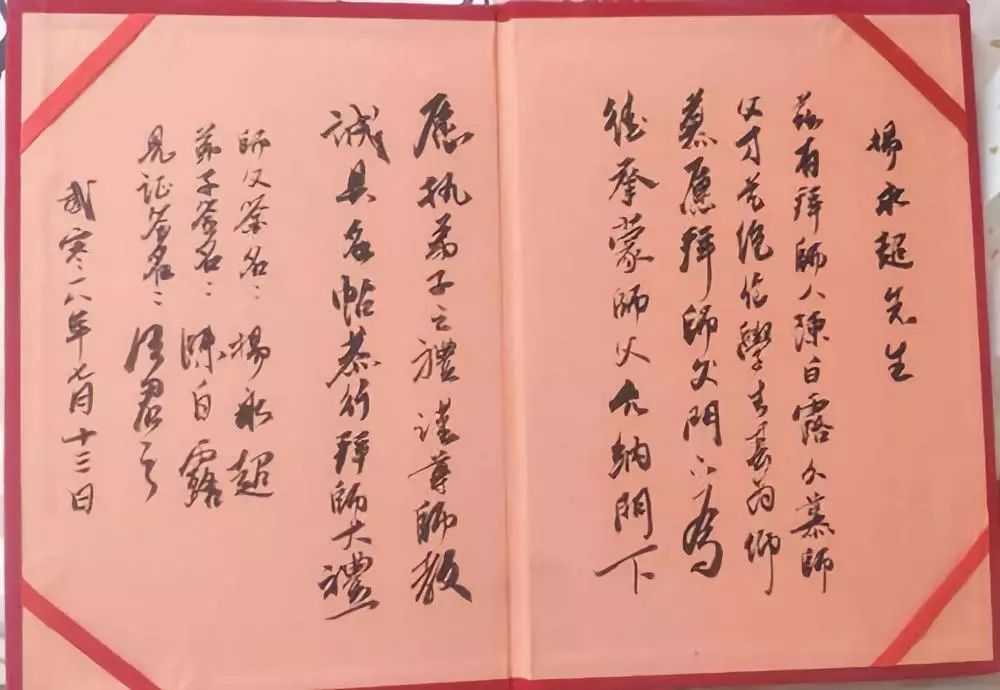 楊永超先生
茲有拜師人陳白露久慕師
父才艺绝伦學為仰
慕愿拜師父門下為
徒承蒙師父允納門下
愿执弟子之禮谨尊師教
誠具名帖恭行拜師大禮
師父签名：楊永超
弟子签名：陳白露
見证签名：
贰零一八年七月十三日